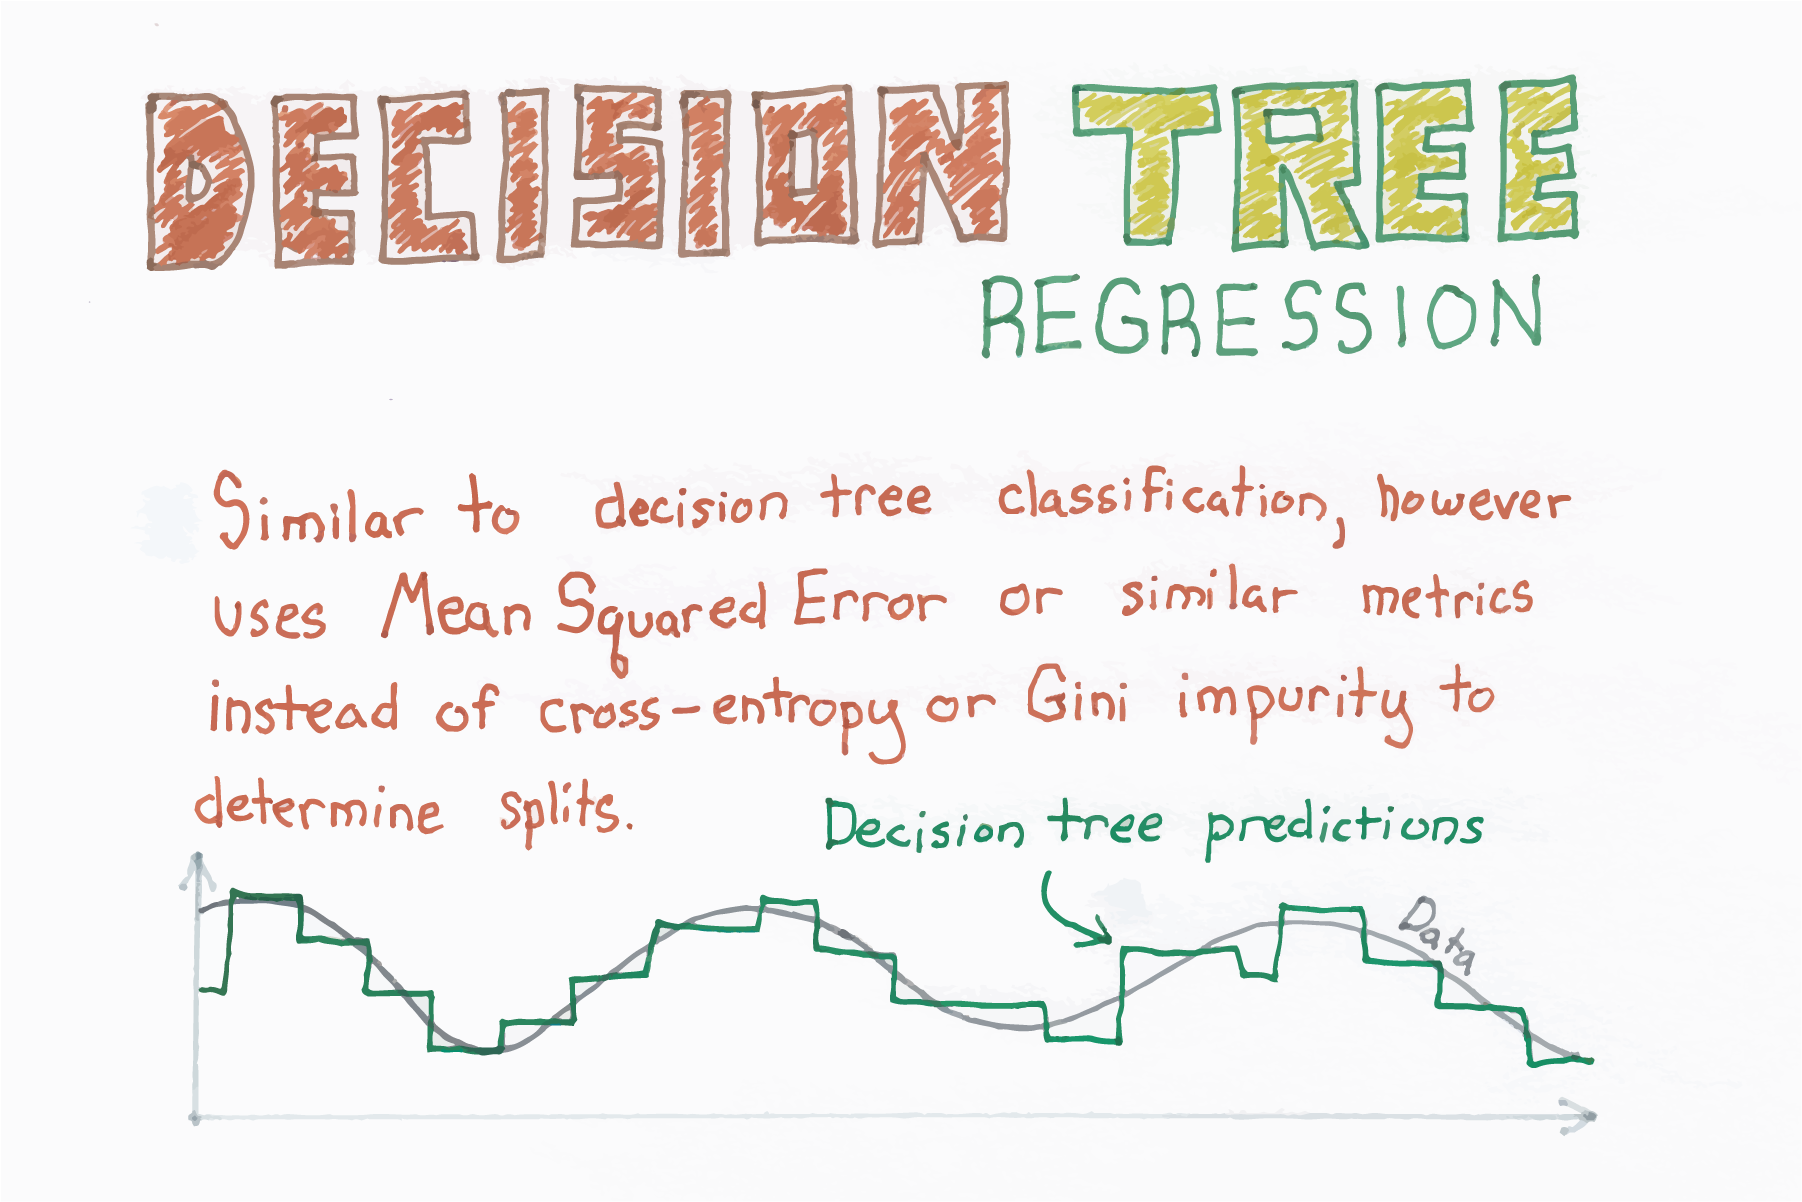 DECISION TREE
REGRESSION
Similar to decision tree classification, however
uses Mean Squared Error or similar metrics
instead of cross-entropy or Gini impurity to
determine splits.
Decision tree predictions
Data